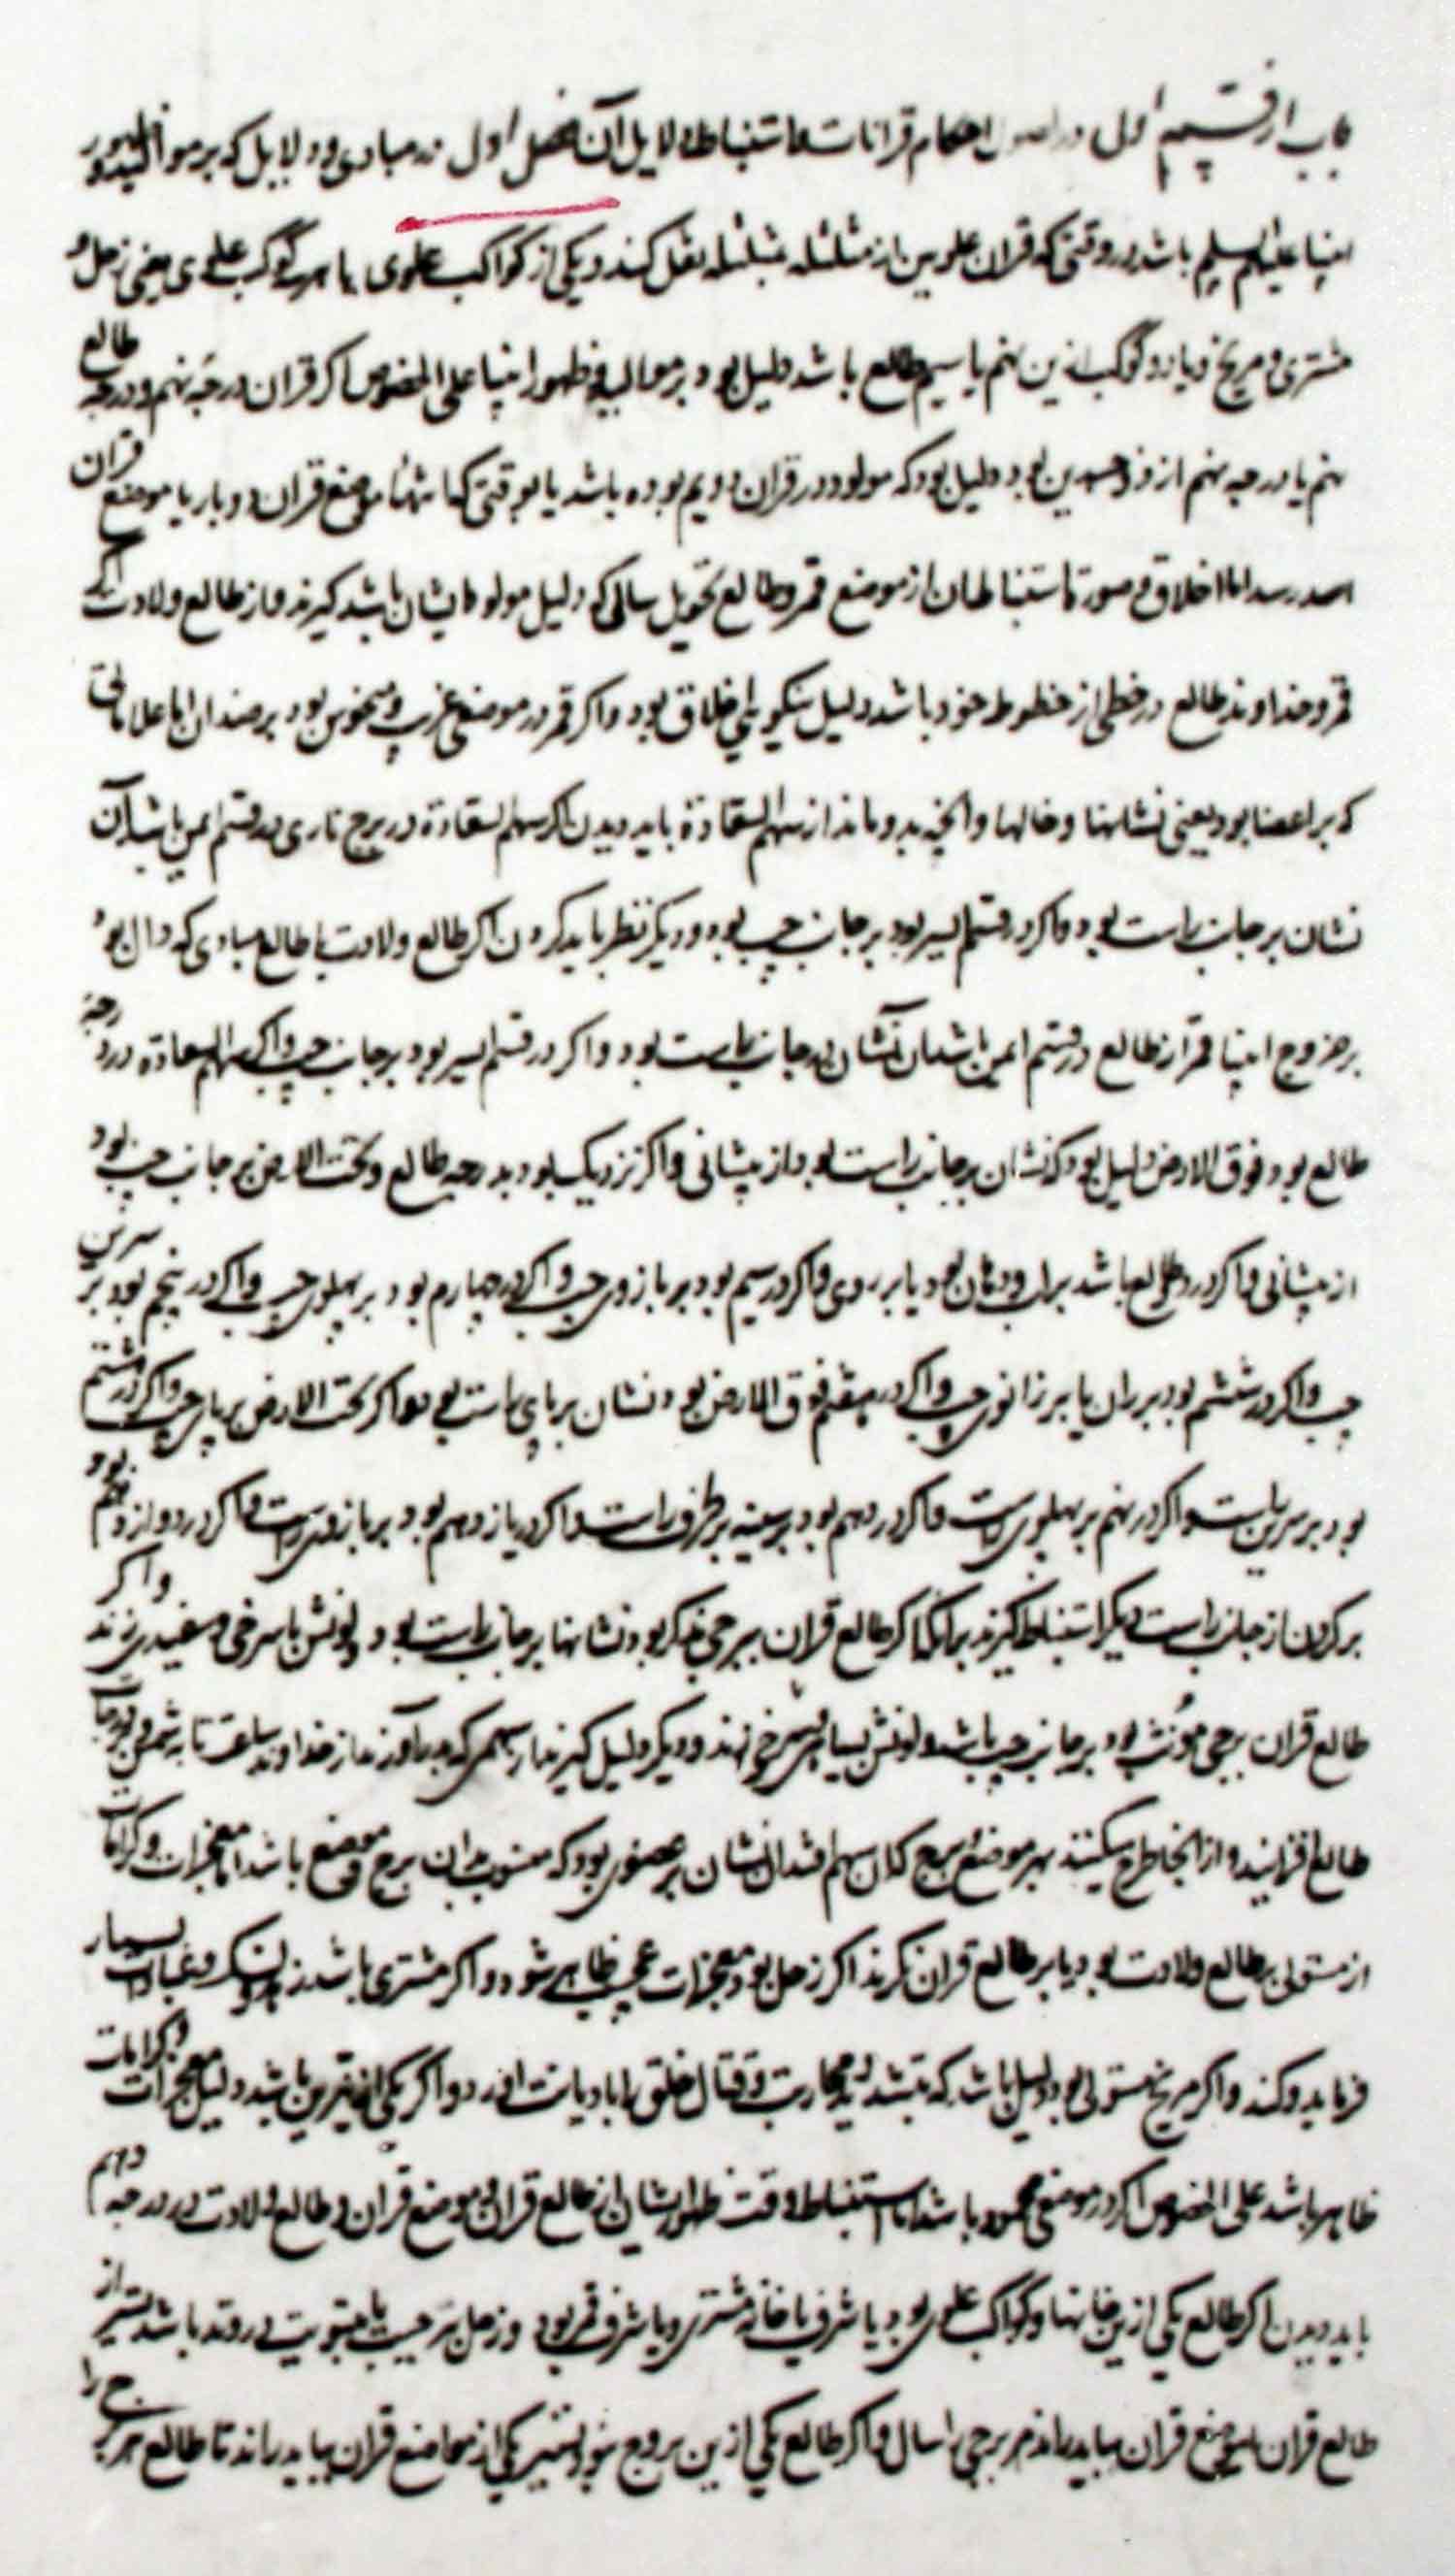 باب از قسم اول در اصول احکام قرانات و استنباط دلایل آن فصل اول در مبادی و دلایل که بر موالید و ظهور
انبیا علیهم السلم باشد در وقتی که قران علویین از مثلثه بمثلثه نقل کند و یکی از کواکب علوی یا هر سه کوکب علوی یعنی زحل و
مشتری و مریخ و یا دو کوکب ازین نهم یا سیم طالع باشد دلیل بود بر موالید و ظهور انبیا علی الخصوص اکر قران در جه نهم و درجه طالع
نهم یا درجه نهم از بود دلیل بود که مولود در قران دویم بوده باشد یا بوقتی که انتها موضع قران دوبار یا موضع قران
رسد اما اخلاق و صورت استنباط آن از موضع قمر و طالع تحویل سالی که دلیل مولود ایشان باشد کیرند و از طالع ولادت اکر
قمر و خداوند طالع در حظی از حظوظ خود باشد دلیل نیکویی اخلاق بود و اکر قمر در موضعی غریب و منحوس بود بر ضد آن اما علاماتی
که بر اعضا بود یعنی نشانها و خالها و آنچه بدو ماند از سهم السعادة باید دیدن اکر سهم السعادة در برج ناری در قسم ایمن باشد آن
نشان بر جانب راست بود و اکر در قسم ایسر بود بر جانب چپ بود و دیکر نظر باید کردن اکر طالع ولادت یا طالع مبادی که دال بود
بر خروج انبیا قمر از طالع در قسم ایمن باشد آن نشان بر جانب راست بود و اکر در قسم ایسر بود بر جانب چپ و اکر سهم السعادة در درجه
طالع بود فوق الارض دلیل بود که نشان بر جانب راست بود از پیشانی و اکر نزدیک بود بدرجه طالع و تحت الارض بر جانب چپ بود
از پیشانی و اکر در طالع باشد بر لب و دهان بود یا بر روی و اکر در سیم بود بر بازوی چپ و اکر در چهارم بود بر پهلوی چپ و اکر در پنجم بود بر سرین
چپ و اکر در ششم بود بر ران یا بر زانوی چپ و اکر در هفتم فوق الارض بود نشان بر پای راست بود و اکر تحت الارض بر پای چپ و اکر در هشتم
بود بر سرین راست و اکر در نهم بر پهلوی راست و اکر در دهم بود بر سینه بر طرف راست و اکر در یازدهم بود بر بازوی راست و اکر در دوازدهم بود
بر کردن از جانب راست دیکر استنباط کیرند بر آنکه اکر طالع قران برجی مذکر بود نشانها بر جانب راست بود و لونش با سرخی و سفیدی زند و اکر
طالع قران برجی مؤنث بود بر جانب چپ باشد و لونش بسیاهی و سرخی زند و دیکر دلیل کیرند از سهمی که بر آورند از خداوند ساعت تا بشمس و بر درجات
طالع افزایند و از آنجا طرح میکنند بهر موضع و برج کان سهم افتد آن نشان بر عضوی بود که منسوب بدان برج و موضع باشد اما معجزات و کرامات
از مستولی بر طالع ولادت بود یا بر طالع قران نکرند اکر زحل بود معجزات عجیب ظاهر شود و اکر مشتری باشد زهد و نسک و عبادت بسیار
فرماید و کند و اکر مریخ مستولی بود دلیل باشد که بتشدید و محاربت و قتال خلق را با دیانت آورد و اکر یکی از نیرین باشد دلیل معجزات و کرامات
ظاهر باشد علی الخصوص اکر در موضعی محمود باشد اما استنباط وقت ظهور ایشان از طالع قران و موضع قران و طالع ولادت در درجه دهم
باید دیدن اکر طالع یکی ازین خانها و کواکب علوی بود یا شرف یا خانه مشتری و یا شرف قمر بود و زحل در وتد باشد تسییر از
طالع قران موضع قران بباید راند هر برجی را سال و اکر طالع یکی ازین بروج نبود تسییر یکی از مواضع قران بباید راند تا طالع هر برج را